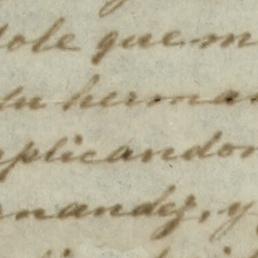 dole que m
su herman
plicandon
rnandez, y